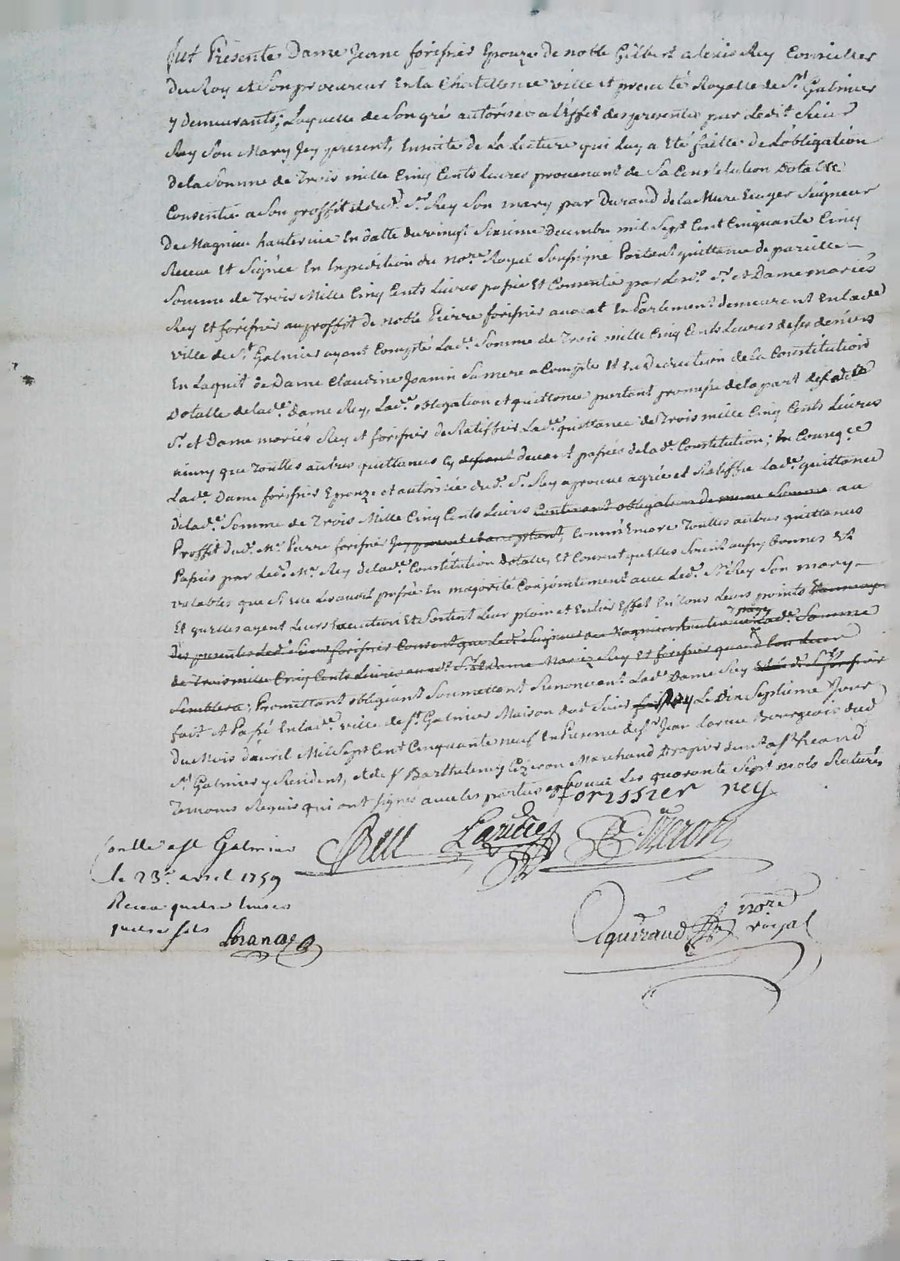 fut Présente Dame Jeanne forissier Epouze de noble Gilbert alexis Rey Conseiller
Du Roy et Son procureur En la Chatellenie ville et prevoté Royalle de St. Galmier
y demeurants; Laquelle de Son gré autorisée a l'Effet des presentes par Ledit Sieur
Rey Son Mary Icy present, Ensuite de La Lecture qui Luy a Eté faitte de L'obligation
De la Somme de Trois mille Cinq Cents Livres provenant de Sa Constitution Dotalle
Consentie a Son proffit et dud. Sr. Rey Son mary par Durand de la Mure Ecuyer Seigneur
De Magnieu hauterive En datte du vingt Sixieme Decembre mil Sept Cent Cinquante Cinq
Receue Et Signée En Expedition du nore. Royal Soussigné Portant quittance de pareille
Somme de Trois Mille Cinq Cents Livres passée Et Consentie par Les d. Sr. et Dame mariés
Rey et forissier au proffit de noble Pierre forissier avocat En Parlement demeurant En lade.
ville de St. Galmier ayant Compté Lade. Somme de Trois mille Cinq Cents Livres de Ses deniers
En Laquit de Dame Claudine Joanin Sa mere a Compte et En Deduction de la Constitution
Dotalle de lade. Dame Rey, Lade. obligation et quittance portant promesse de la part desd.
Sr. et Dame mariés Rey et forissier de Ratiffier Lade. quittance de Trois mille Cinq Cents Livres
ainsy que Touttes autres quittances cy devant passées de lad. Constitution; En Conseqce.
Lade. Dame forissier Epouze et autorisée dud. Sr. Rey aprouve agrée et Ratiffie Lade. quittance
de lade. Somme de Trois Mille Cinq Cents Livres Contenant obligation de meme Somme au
Proffit dud. Me. Pierre forissier, Comme Encore Touttes autres quittances
Passées par Led. Me. Rey de lade. Constitution Dotalle, Et Consent qu'elles Soient aussy bonnes Et
valables que Si Elle Les avoit passées En majorité Conjointement avec Led. Sr. Rey Son mary
Et qu'elles ayent Leurs Execution Et Sortent Leur plein et Entier Effet En Tous Leurs points
des presentes Led. Sieur forissier Consent que Led. Seigneur de Magnieu Lade. Somme
de Trois mille Cinq Cents Livres auxd. Sr. et Dame Mariez Rey et forissier quand bon Leur
Semblera; Promettant obligeant Soumettant Renonceant Lade. Dame Rey
fait et Passé En lade. ville de St. Galmier Maison dud. Sieur Rey Le Dix Septieme Jour
du Mois d'avril Mil Sept Cent Cinquante neuf En presence de Sr. Jean Bourgeois dud.
St. Galmier y Resident, et de Sr. Barthelemy Cizeron Marchand Drapier
Temoins Requis qui ont Signé avec les parties aprouvé Les quarante Sept mots Raturés
forissier rey
Rey
Cizeron
Conllé a St Galmier
le 23e. avril 1759
Receu quatre livres
quatre sols
nore.
royal